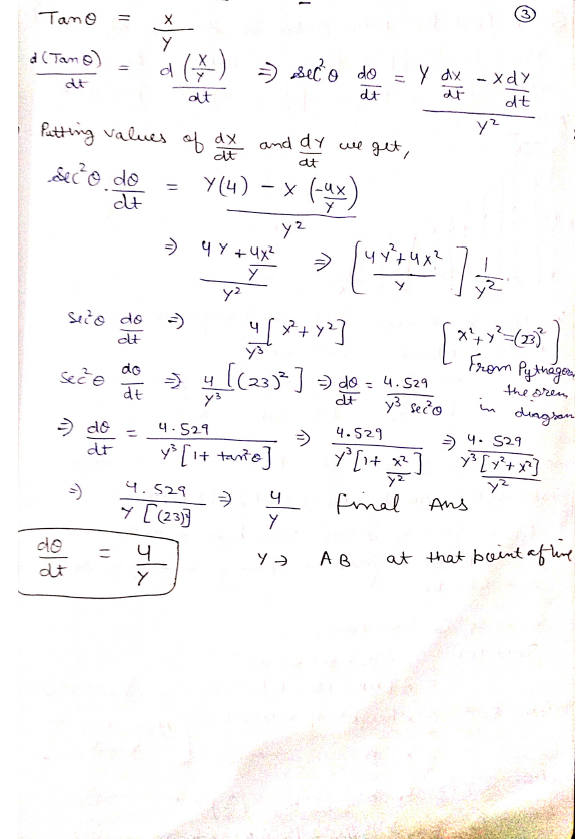 ③
Tanθ = x/Y
d(Tanθ)/dt = d(x/Y)/dt ⇒ sec²θ dθ/dt = (Y dx/dt - x dY/dt)/Y²
Putting values of dx/dt and dY/dt we get,
sec²θ. dθ/dt = (Y(4) - x(-4x/Y))/Y²
⇒ (4Y + 4x²/Y)/Y² ⇒ [(4Y² + 4x²)/Y] 1/Y²
sec²θ dθ/dt ⇒ 4/Y³ [x² + Y²] [x² + Y² = (23)²]
From Pythagorea
theorem
in diagram
sec²θ dθ/dt ⇒ 4/Y³ [(23)²] ⇒ dθ/dt = 4.529/(Y³ sec²θ)
⇒ dθ/dt = 4.529/(Y³[1 + tan²θ]) ⇒ 4.529/(Y³[1 + x²/Y²]) ⇒ 4.529/(Y³[Y² + x²]/Y²)
⇒ 4.529/(Y[(23)²]) ⇒ 4/Y final Ans
dθ/dt = 4/Y Y → AB at that point of time